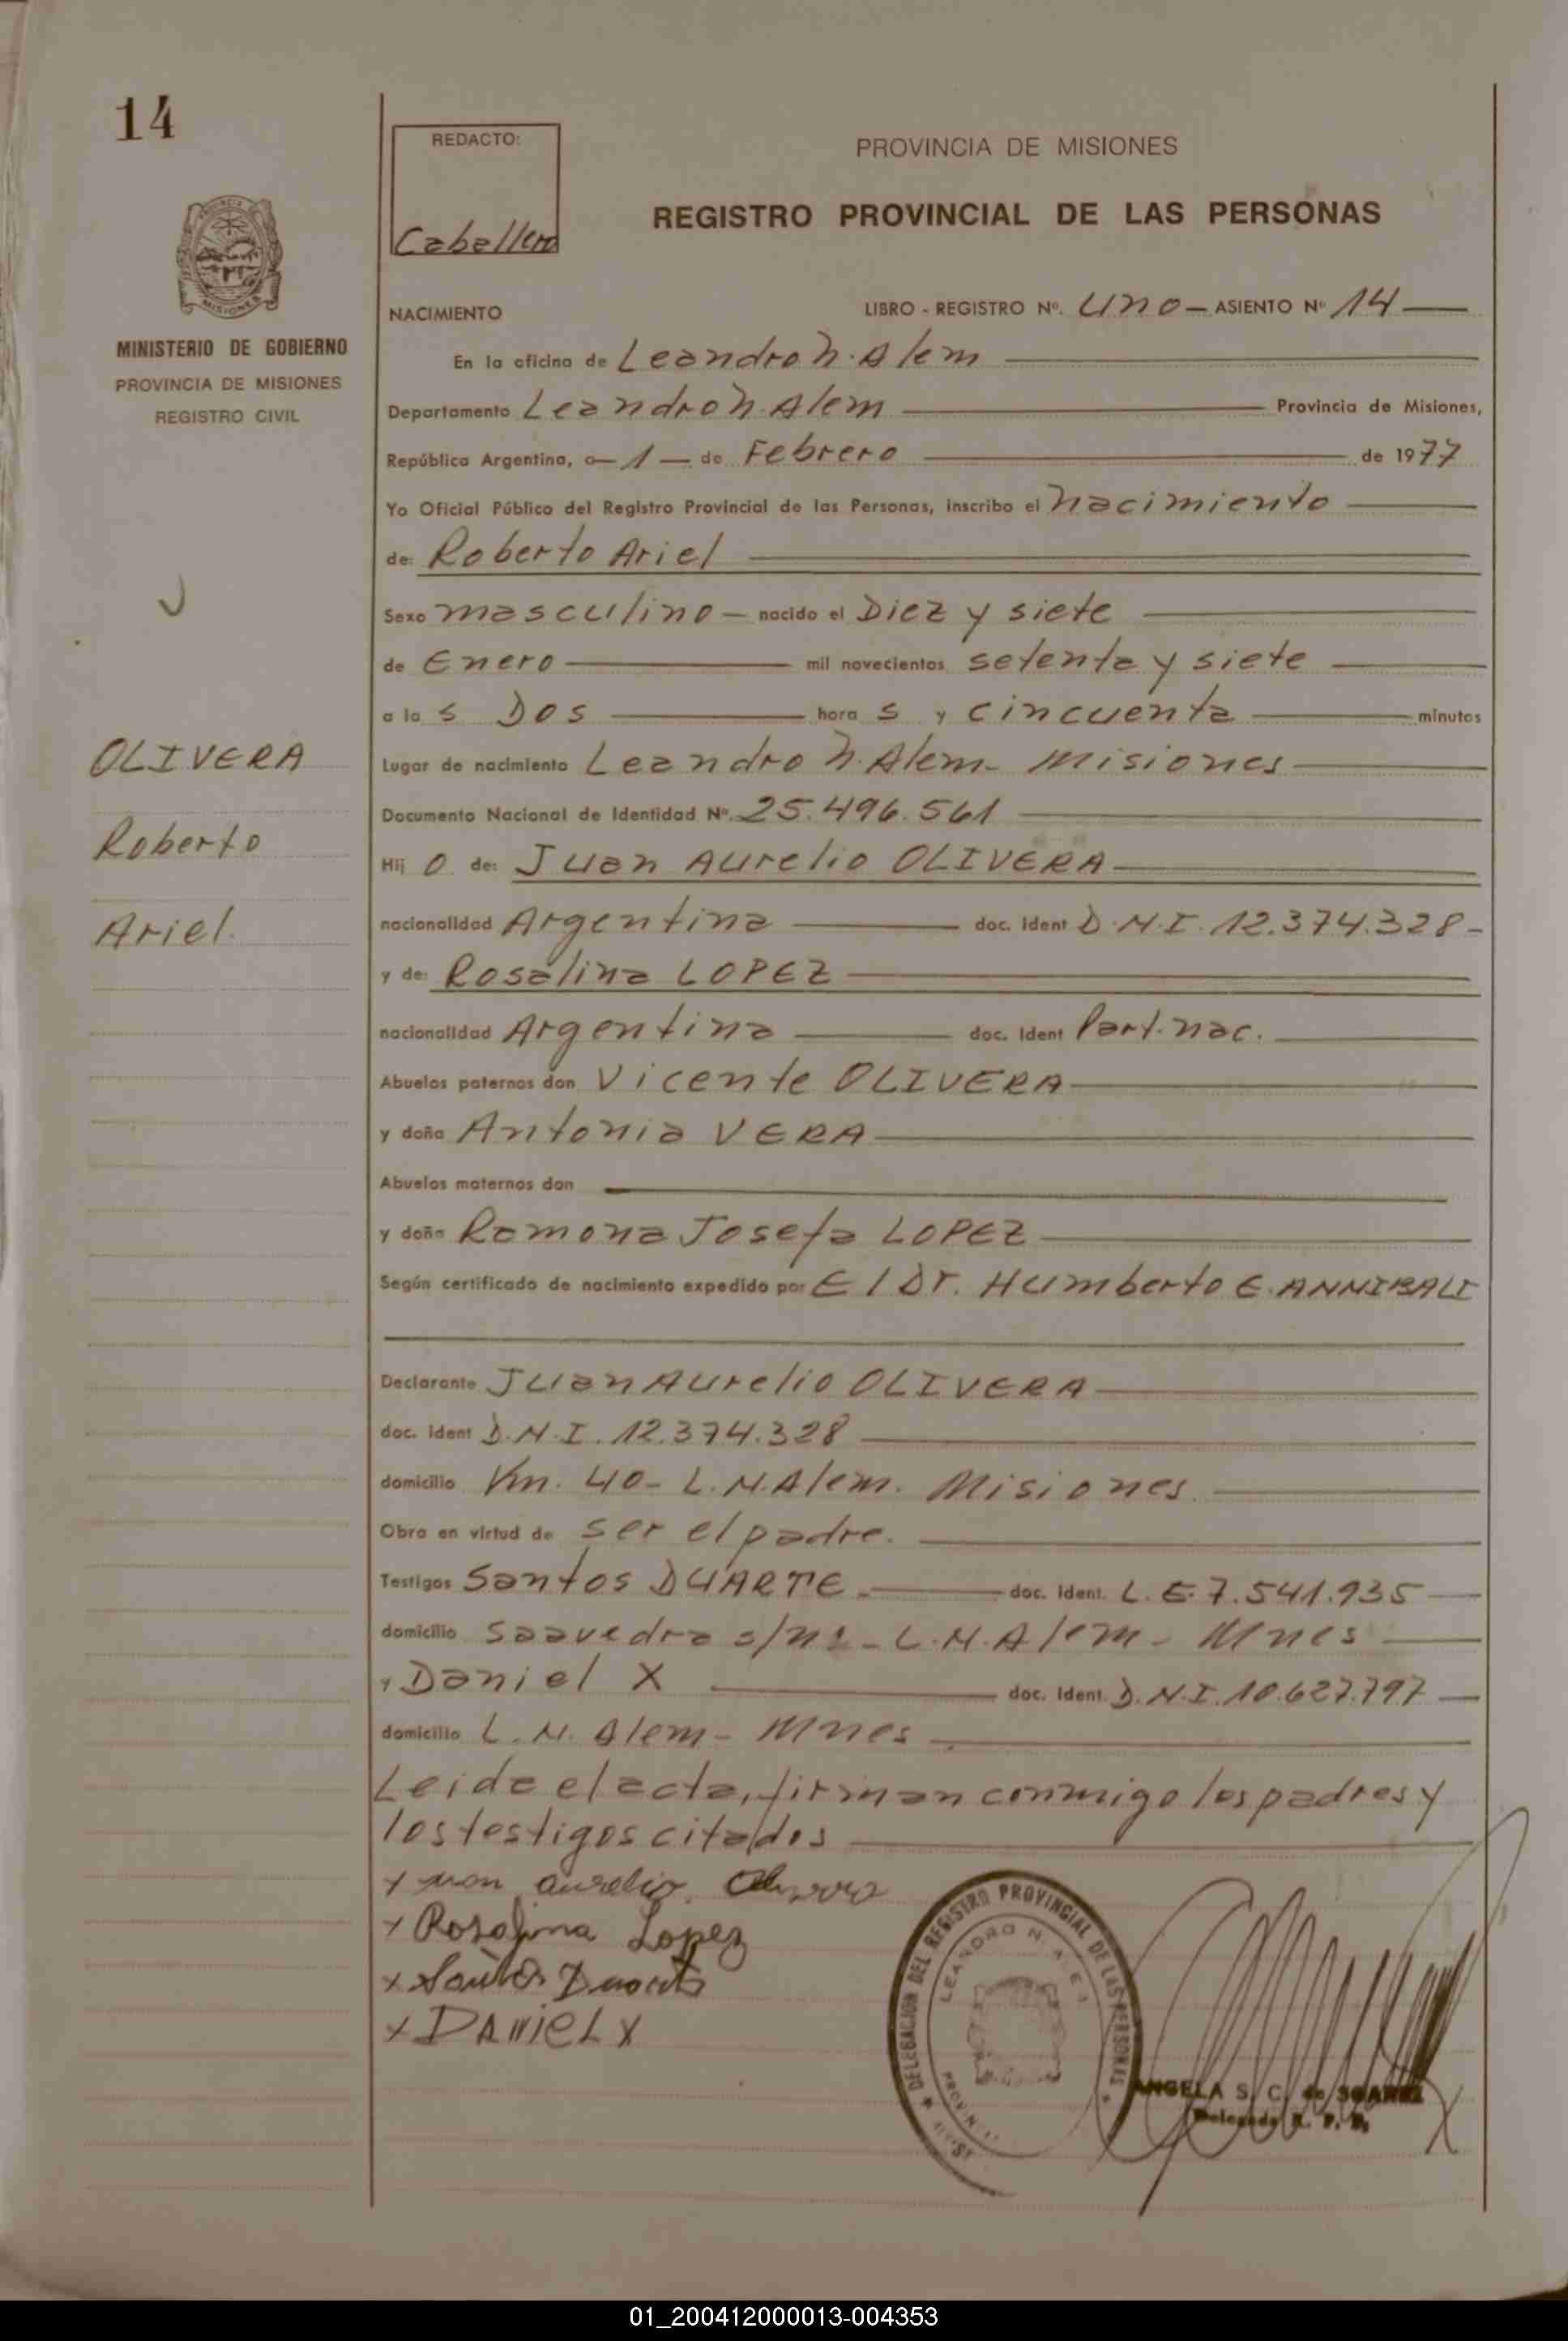 14
REDACTO:
Caballero
PROVINCIA DE MISIONES
REGISTRO PROVINCIAL DE LAS PERSONAS
MISIONES
MINISTERIO DE GOBIERNO
PROVINCIA DE MISIONES
REGISTRO CIVIL
NACIMIENTO
LIBRO - REGISTRO Nº. Uno - ASIENTO Nº 14
En la oficina de Leandro N. Alem
Departamento Leandro N. Alem Provincia de Misiones,
República Argentina, a 1 de Febrero de 1977
Yo Oficial Público del Registro Provincial de las Personas, inscribo el nacimiento
de: Roberto Ariel
Sexo masculino nacido el Diez y siete
de Enero mil novecientos setenta y siete
a las Dos horas y cincuenta minutos
Lugar de nacimiento Leandro N. Alem - Misiones
Documento Nacional de Identidad Nº. 25.496.561
Hijo de: Juan Aurelio OLIVERA
nacionalidad Argentina doc. Ident D.N.I. 12.374.328-
y de: Rosalina LOPEZ
nacionalidad Argentina doc. Ident Part. nac.
Abuelos paternos don Vicente OLIVERA
y doña Antonia VERA
Abuelos maternos don
y doña Ramona Josefa LOPEZ
Según certificado de nacimiento expedido por El Dr. Humberto E. ANNIBALI
Declarante Juan Aurelio OLIVERA
doc. Ident D.N.I. 12.374.328
domicilio Km. 40- L.N.Alem. Misiones.
Obra en virtud de ser el padre.
Testigos Santos DUARTE doc. Ident. L.E. 7.541.935
domicilio Saavedra s/nº - L.N.Alem - Mnes
y Daniel X doc. Ident. D.N.I. 10.627.797
domicilio L.N. Alem - Mnes
Leida el acta, firman conmigo los padres y
los testigos citados
OLIVERA
Roberto
Ariel.
x Juan aurelio Olivera
x Rosalina Lopez
x Santos Duarte
x DANIEL X
DELEGACION DEL REGISTRO PROVINCIAL DE LAS PERSONAS
LEANDRO N. ALEM
ANGELA S. C. de SUAREZ
Delegada R. P. P.
01_200412000013-004353